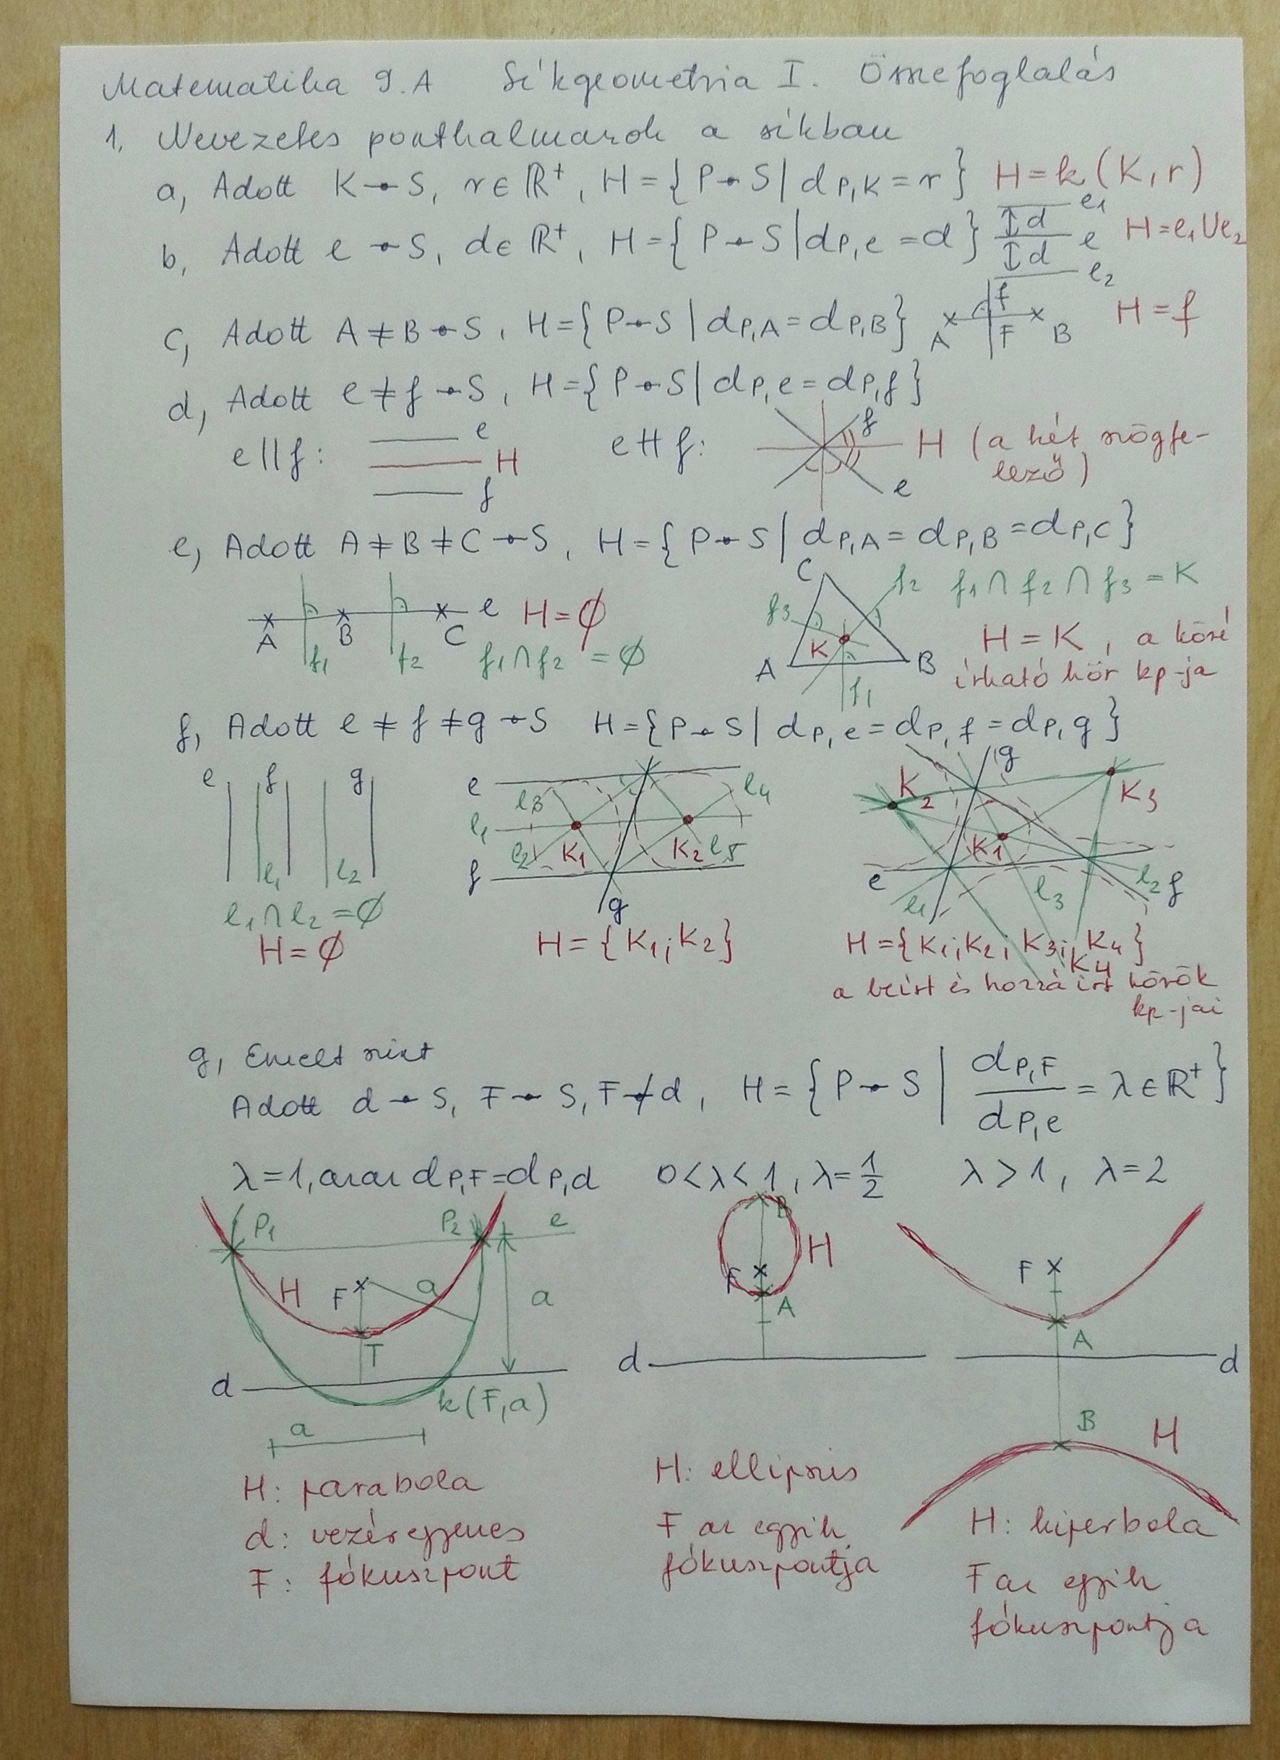 Matematika 9.A Síkgeometria I. Összefoglalás
1, Nevezetes ponthalmazok a síkban
a, Adott K⊸S, r∈ℝ⁺, H={P⊸S | dP,K=r} H=k(K,r)
b, Adott e⊸S, d∈ℝ⁺, H={P⊸S | dP,e=d} d d e1 e e2 H=e1∪e2
c, Adott A≠B⊸S, H={P⊸S | dP,A=dP,B} A f F B H=f
d, Adott e≠f⊸S, H={P⊸S | dP,e=dP,f}
e||f: e H f e∦f: f e H (a két szögfe-
lező)
e, Adott A≠B≠C⊸S, H={P⊸S | dP,A=dP,B=dP,C}
A B C e f1 f2 H=∅
f1∩f2=∅
C f2 f3 K A B f1 f1∩f2∩f3=K
H=K, a köré
írható kör kp-ja
f, Adott e≠f≠g⊸S H={P⊸S | dP,e=dP,f=dP,g}
e f g l1 l2
l1∩l2=∅
H=∅
e l3 l4 l1 l2 K1 K2 l5 f g
H={K1;K2}
g K2 K3 K1 e l1 l3 l2 f
H={K1;K2;K3;K4}
K4
a beírt és hozzáírt körök
kp-jai
g, Emelt szint
Adott d⊸S, F⊸S, F⊸̸d, H={P⊸S | dP,F/dP,e=λ∈ℝ⁺}
λ=1, azaz dP,F=dP,d 0<λ<1, λ=1/2 λ>1, λ=2
P1 P2 e H F a a T d k(F,a) a
B H F A d
F A d B H
H: parabola
d: vezéregyenes
F: fókuszpont
H: ellipszis
F az egyik
fókuszpontja
H: hiperbola
F az egyik
fókuszpontja